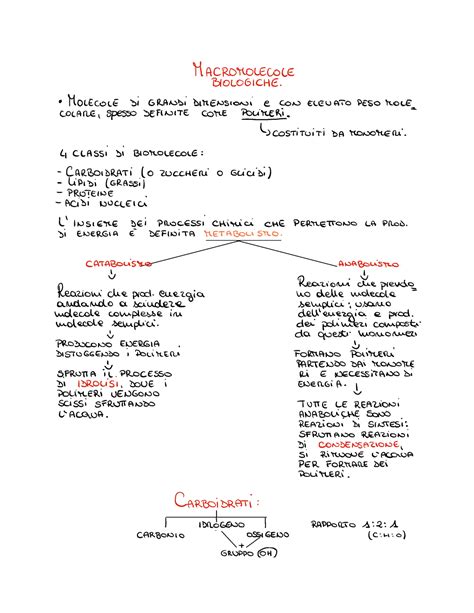 MACROMOLECOLE
BIOLOGICHE.
• MOLECOLE DI GRANDI DIMENSIONI E CON ELEVATO PESO MOLE=
COLARE, SPESSO DEFINITE COME POLIMERI.
↳ COSTITUITI DA MONOMERI.
4 CLASSI DI BIOMOLECOLE:
- CARBOIDRATI (O ZUCCHERI O GLICIDI)
- LIPIDI (GRASSI)
- PROTEINE
- ACIDI NUCLEICI
L'INSIEME DEI PROCESSI CHIMICI CHE PERMETTONO LA PROD.
DI ENERGIA È DEFINITA METABOLISMO.
CATABOLISMO
REAZIONI CHE PROD. ENERGIA
ANDANDO A SCINDERE
MOLECOLE COMPLESSE IN
MOLECOLE SEMPLICI.
PRODUCONO ENERGIA
DISTUGGENDO I POLIMERI
SFRUTTA IL PROCESSO
DI IDROLISI, DOVE I
POLIMERI VENGONO
SCISSI SFRUTTANDO
L'ACQUA.
ANABOLISMO
REAZIONI CHE PRENDO=
NO DELLE MOLECOLE
SEMPLICI; USANO
DELL'ENERGIA E PROD.
DEI POLIMERI COMPOSTI
DA QUESTI MONOMERI
FORMANO POLIMERI
PARTENDO DAI MONOME
RI E NECESSITANO DI
ENERGIA.
TUTTE LE REAZIONI
ANABOLICHE SONO
REAZIONI DI SINTESI:
SFRUTTANO REAZIONI
DI CONDENSAZIONE,
SI RIMUOVE L'ACQUA
PER FORMARE DEI
POLIMERI.
CARBOIDRATI:
CARBONIO IDROGENO OSSIGENO RAPPORTO 1:2:1
(C:H:O)
+
GRUPPO (OH)